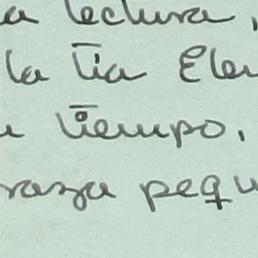 a lectura,
la tía Ele
tiempo.
raza pequ